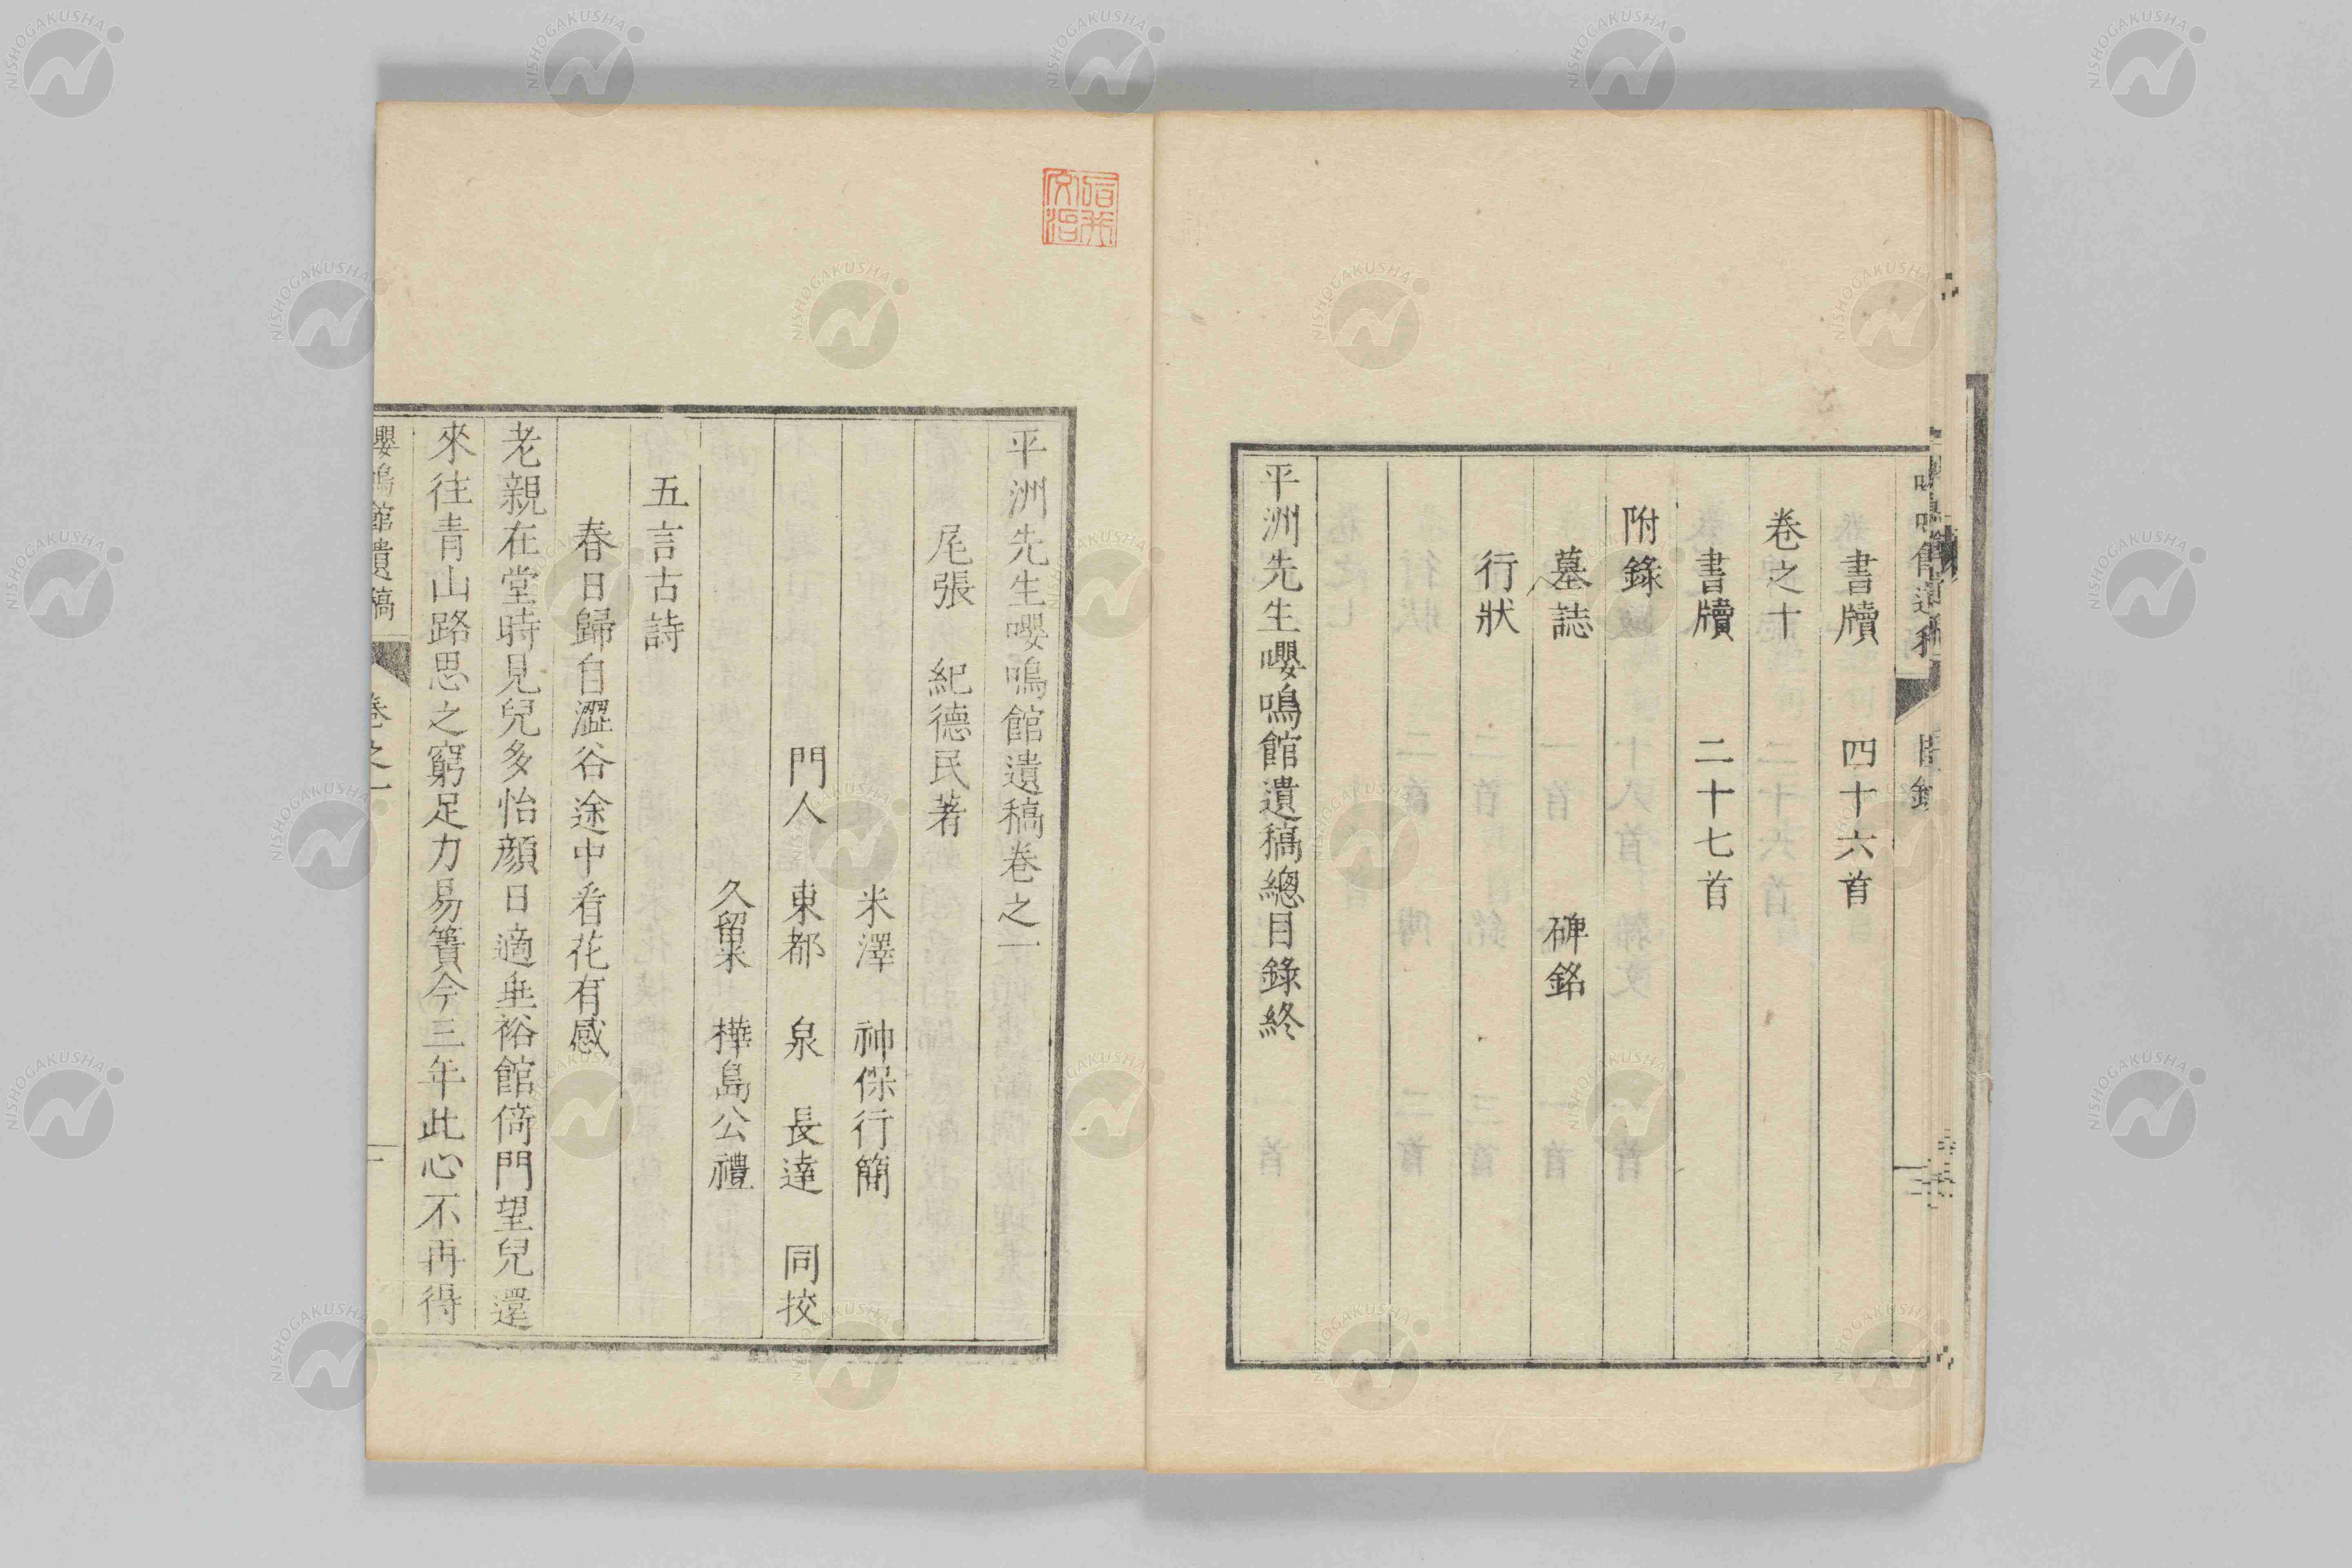 書牘 四十六首
卷之十
書牘 二十七首
附錄
墓誌 碑銘
行狀
平洲先生嚶鳴館遺稿總目錄終
平洲先生嚶鳴館遺稿卷之一
尾張 紀德民著
米澤 神保行簡
門人 東都 泉 長達 同挍
久留米 樺島公禮
五言古詩
春日歸自澀谷途中看花有感
老親在堂時見兒多怡顏日適垂裕館倚門望兒還
來往青山路思之窮足力易簀今三年此心不再得
嚶鳴館遺稿 卷之一
NISHOGAKUSHA